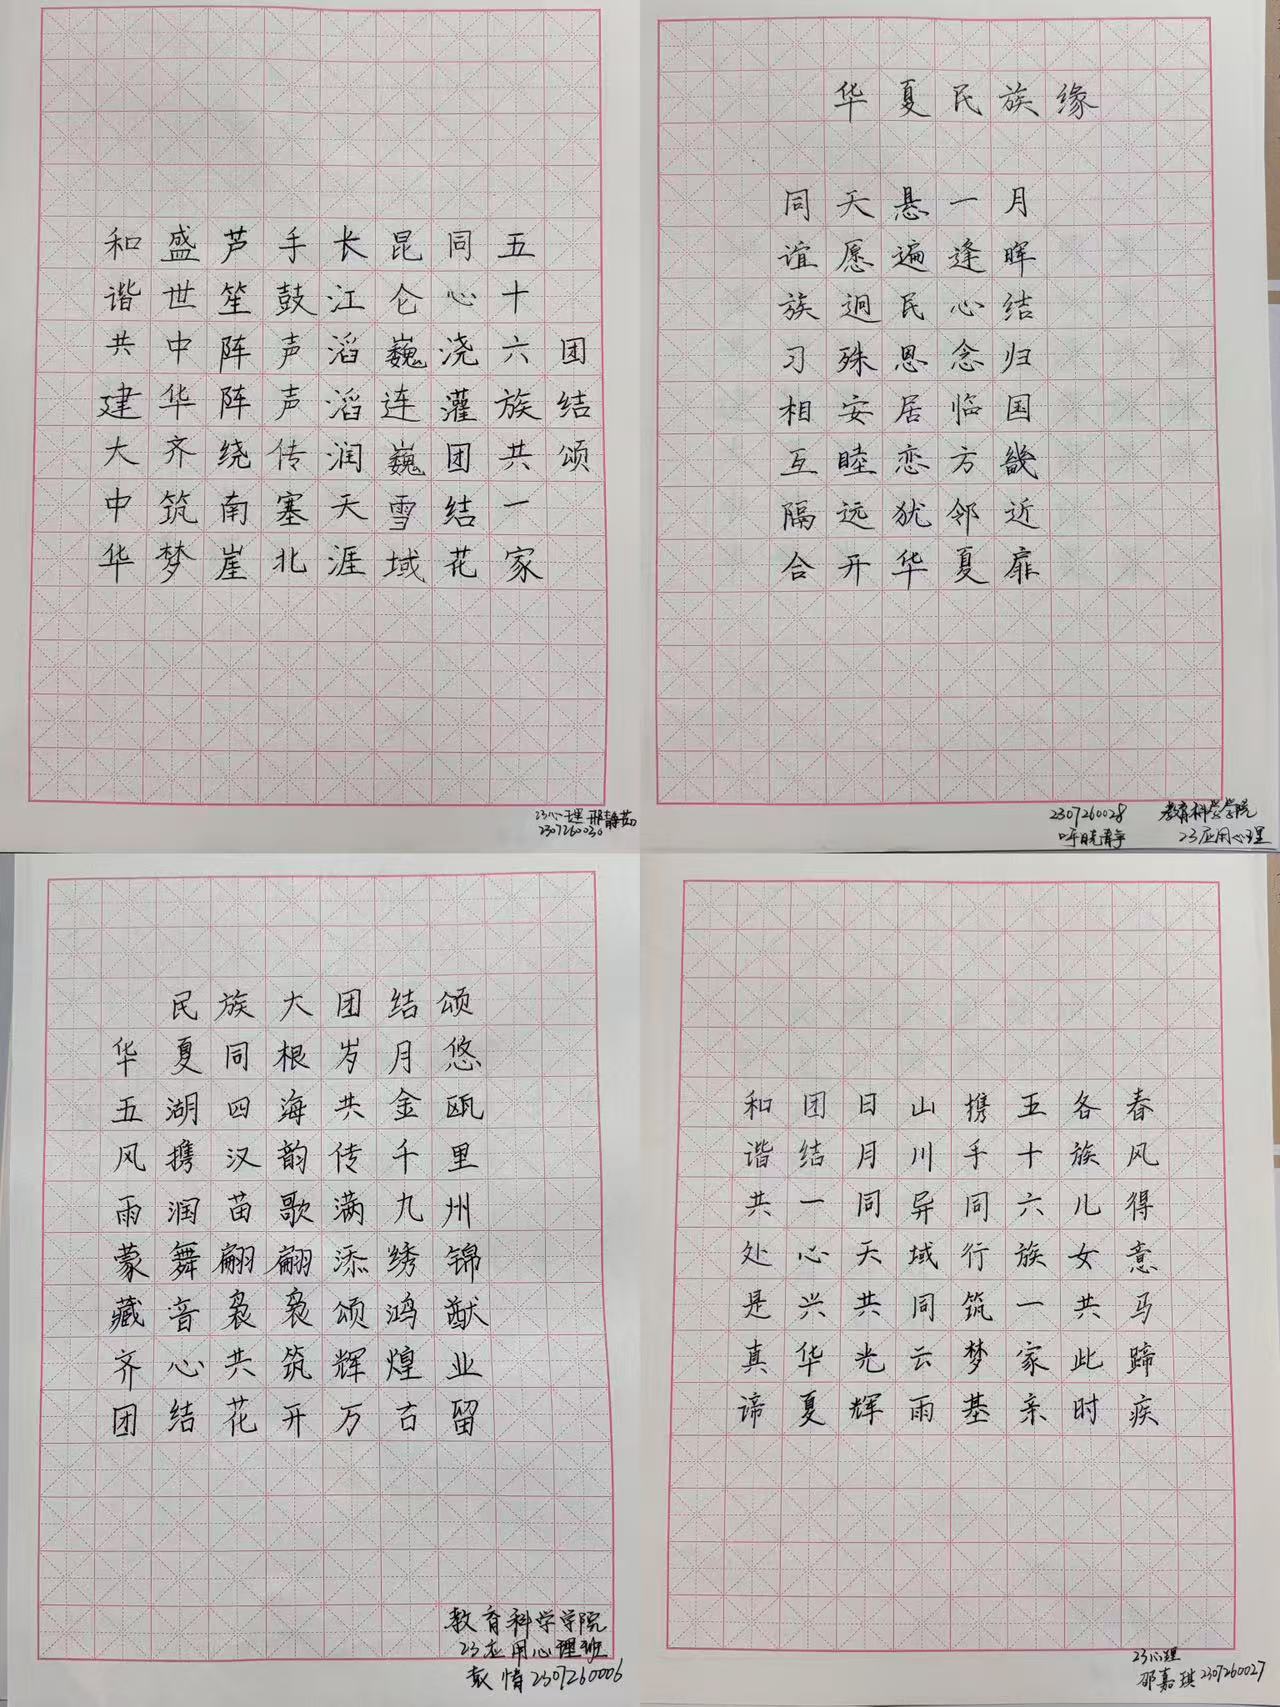 团结颂
五十六族共一家
同心浇灌团结花
昆仑巍连巍雪域
长江滔滔润天涯
手鼓声声传塞北
芦笙阵阵绕南崖
盛世中华齐筑梦
和谐共建大中华
23心理 邢静茹
2307260030
华夏民族缘
同天悬一月
谊愿遍逢晖
族迥民心结
习殊恩念归
相安居临国
互睦恋方畿
隔远犹邻近
合开华夏扉
2307260028 教育科学学院
呼晓静 23应用心理
民族大团结颂
华夏同根岁月悠
五湖四海共金瓯
风携汉韵传千里
雨润苗歌满九州
蒙舞翩翩添绣锦
藏音袅袅颂鸿猷
齐心共筑辉煌业
团结花开万古留
教育科学学院
23应用心理班
2307260006
春风得意马蹄疾
各族儿女共此时
五十六族一家亲
携手同行筑梦基
山川异域同云雨
日月同天共光辉
团结一心兴华夏
和谐共处是真谛
23心理
邵嘉琪 2307260027